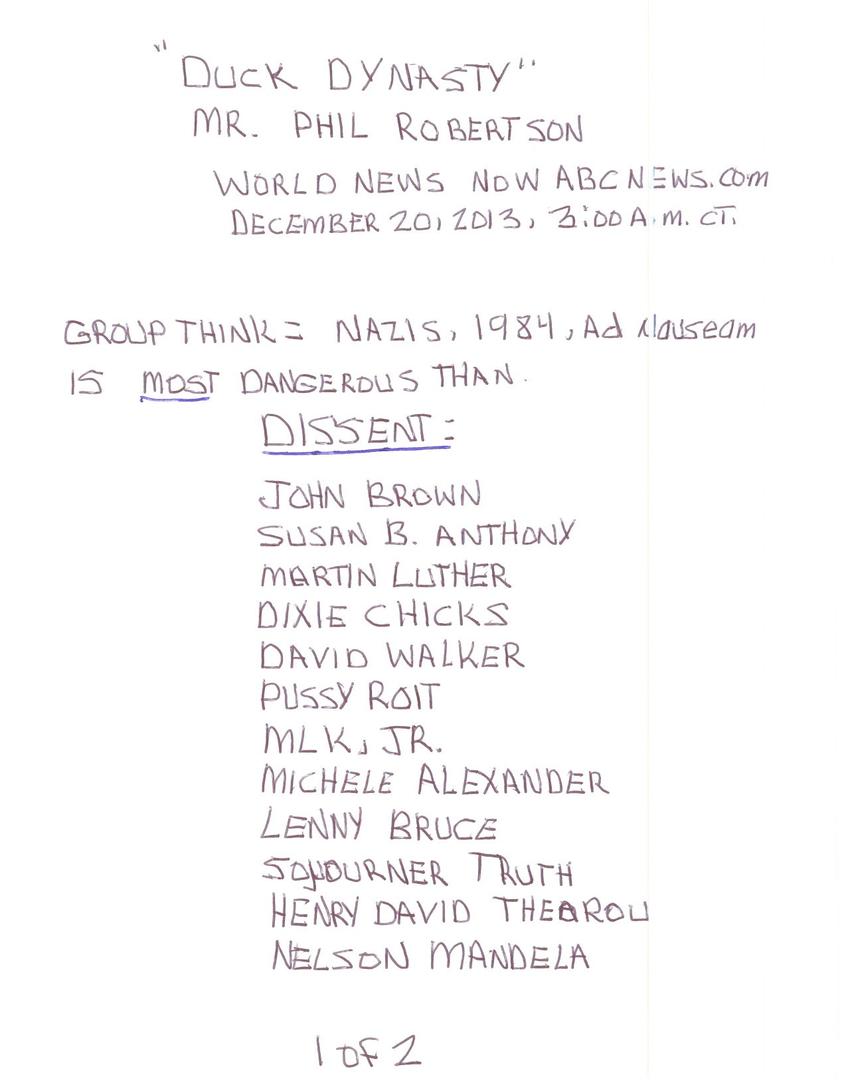 "DUCK DYNASTY"
MR. PHIL ROBERTSON
WORLD NEWS NOW ABCNEWS.com
DECEMBER 20, 2013, 3:00 A.M. CT.
GROUP THINK = NAZIS, 1984, Ad Nauseam
IS MOST DANGEROUS THAN.
DISSENT:
JOHN BROWN
SUSAN B. ANTHONY
MARTIN LUTHER
DIXIE CHICKS
DAVID WALKER
PUSSY ROIT
MLK, JR.
MICHELE ALEXANDER
LENNY BRUCE
SOJOURNER TRUTH
HENRY DAVID THEAROU
NELSON MANDELA
1 of 2